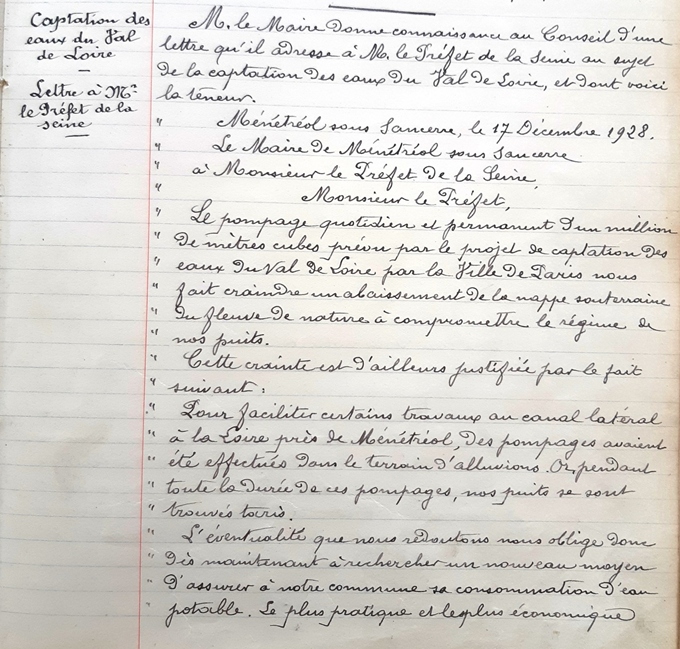 Captation des
eaux du Val
de Loire
—
Lettre à Mr
le Préfet de la
seine
—
M. le Maire donne connaissance au Conseil d'une
lettre qu'il adresse à M. le Préfet de la Seine au sujet
de la captation des eaux du Val de Loire, et dont voici
la teneur.
" Ménétréol sous Sancerre, le 17 Décembre 1928.
" Le Maire de Ménétréol sous Sancerre
" à Monsieur le Préfet de la Seine,
" Monsieur le Préfet,
" Le pompage quotidien et permanent d'un million
" de mètres cubes prévu par le projet de captation des
" eaux du Val de Loire par la Ville de Paris nous
" fait craindre un abaissement de la nappe souterraine
" du fleuve de nature à compromettre le régime de
" nos puits.
" Cette crainte est d'ailleurs justifiée par le fait
" suivant :
" Pour faciliter certains travaux au canal latéral
" à la Loire près de Ménétréol, des pompages avaient
" été effectués dans le terrain d'alluvions. Or, pendant
" toute la durée de ces pompages, nos puits se sont
" trouvés taris.
" L'éventualité que nous redoutons nous oblige donc
" dès maintenant à rechercher un nouveau moyen
" d'assurer à notre commune sa consommation d'eau
" potable. Le plus pratique et le plus économique